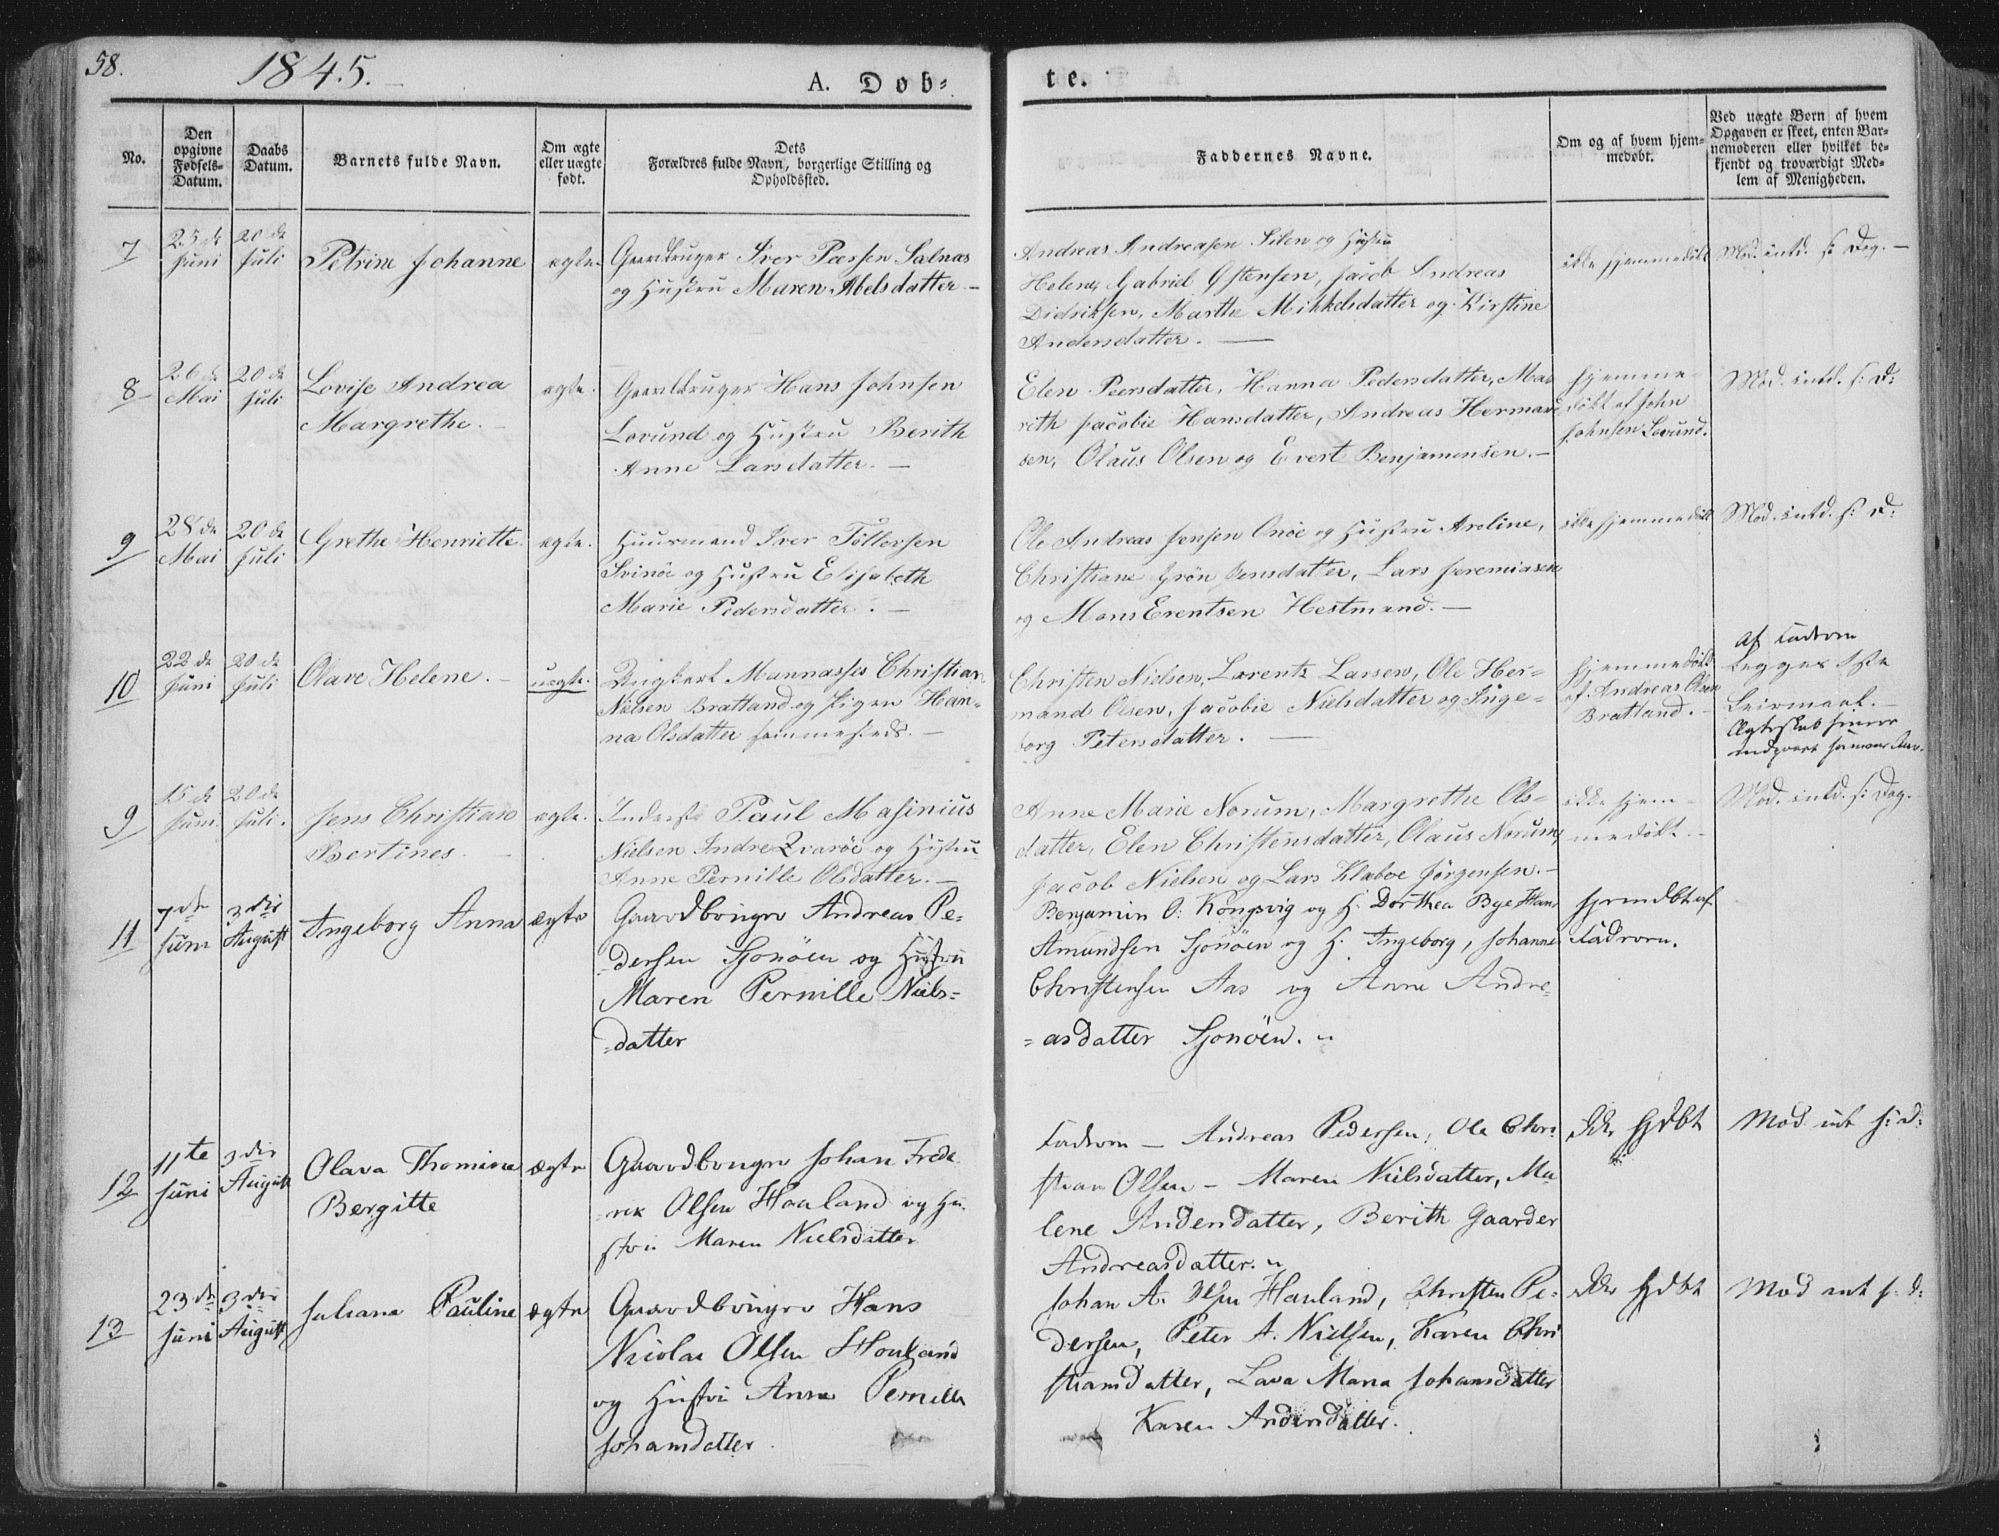 58.
1845.
A. Døb-
te.
No.
Den
opgivne
Fødsels-
Datum.
Daabs
Datum.
Barnets fulde Navn.
Om ægte
eller uægte
født.
Dets
Forældres fulde Navn, borgerlige Stilling og
Opholdssted.
Faddernes Navne.
Om og af hvem hjem-
medøbt.
Ved uægte Børn af hvem
Opgaven er skeet, enten Bar-
nemoderen eller hvilket be-
kjendt og troværdigt Med-
lem af Menigheden.
7
25de
Juni
20de
Juli
Petrine Johanne
ægte.
Gaardbruger Iver Pæssen Selnæs
og Hustru Maren Abelsdatter. -
Andreas Andreasen Silen og Hustru
Helena, Gabriel Østensen, Jacob Andreas
Didriksen, Marthe Mikkelsdatter og Kirstine
Andersdatter. -
ikke hjemmedøbt
Mod. intd. s: Dag. -
8
26de
Mai
20de
Juli
Lovise Andrea
Margrethe. -
ægte.
Gaardbruger Hans Johnsen
Lovund og Hustru Berith
Anne Larsdatter. -
Elen Peersdatter, Hanna Pedersdatter, Ma-
rith Jacobie Hansdatter, Andreas Herman
sen, Olaus Olsen og Evert Benjamensen. -
hjemme-
døbt af John
Johnsen Lovund.
Mod. intd. s: D:
9
28de
Mai
20de
Juli
Grethe Henriette
ægte.
Huusmand Iver Tollersen
Svinöe og Hustru Elisabeth
Marie Pedersdatter. -
Ole Andreas Jensen Onöe og Hustru Areline,
Christiane Grön Jensdatter, Lars Jeremiasen
og Mons Erentsen Hestmand. -
ikke hjemmedøbt
Mod. intd. s: D:
10
22de
Juni
20de
Juli
Olave Helene. -
uægte.
Ungkarl Mannasses Christian
Nielsen Bratland og Pigen Han-
na Olsdatter sammesteds. -
Christen Nielsen, Lorentz Larsen, Ole Her-
mand Olsen, Jacobie Nielsdatter og Inge-
borg Petersdatter. -
hjemmedøbt
af Andreas Olsen
Bratland. -
Af Faderen
9
15de
Juni
20de
Juli.
Jens Christian
Bertines. -
ægte.
Inderst Paul Masinius
Nielsen Indre Qvaröe og Hustru
Anne Pernille Olsdatter. -
Anne Marie Norum, Margrethe Ols-
datter, Elen Christensdatter, Olaus Norum,
Jacob Nielsen og Lars Klaboe Jørgensen. -
ikke hjem-
medøbt. -
Mod. intd. s: Dag. -
11
7de
Juni
3die
August
Ingeborg Anna
ægte
Gaardbruger Andreas Pe-
-dersen Sjonöen og Hustru
Maren Pernille Niels-
-datter
Benjamin O: Kongsvig og H. Dorthea Bye Hans
Amundsen Sjonöen og H. Ingeborg, Johanne
Christensen Aas og Anne Andre-
-asdatter Sjonöen. "
hjemdbt af
Faderen.
12
11te
Juni
3die
August
Olava Thomine
Bergitte
ægte
Gaardbruger Johan Frede
-rik Olsen Houland og Hu-
stru Maren Nielsdatter
Faderen - Andreas Pedersen, Ole Chri
stian Olsen - Maren Nielsdatter, Ma
lene Andersdatter, Berith Gaarder
Andreasdatter. "
Ikke hjdbt
Mod int s: d:
13
23de
Juni
3die
August
Juliana Pauline
ægte
Gaardbruger Hans
Nicolai Olsen Houland
og Hustru Anne Pernille
Johansdatter.
Johan A. Olsen Houland, Christen Pe-
dersen, Peter A. Nielsen, Karen Chri
stiansdatter, Lava Maria Johansdatter
Karen Andersdatter.
Ikke hjdbt
Mod int s. d: